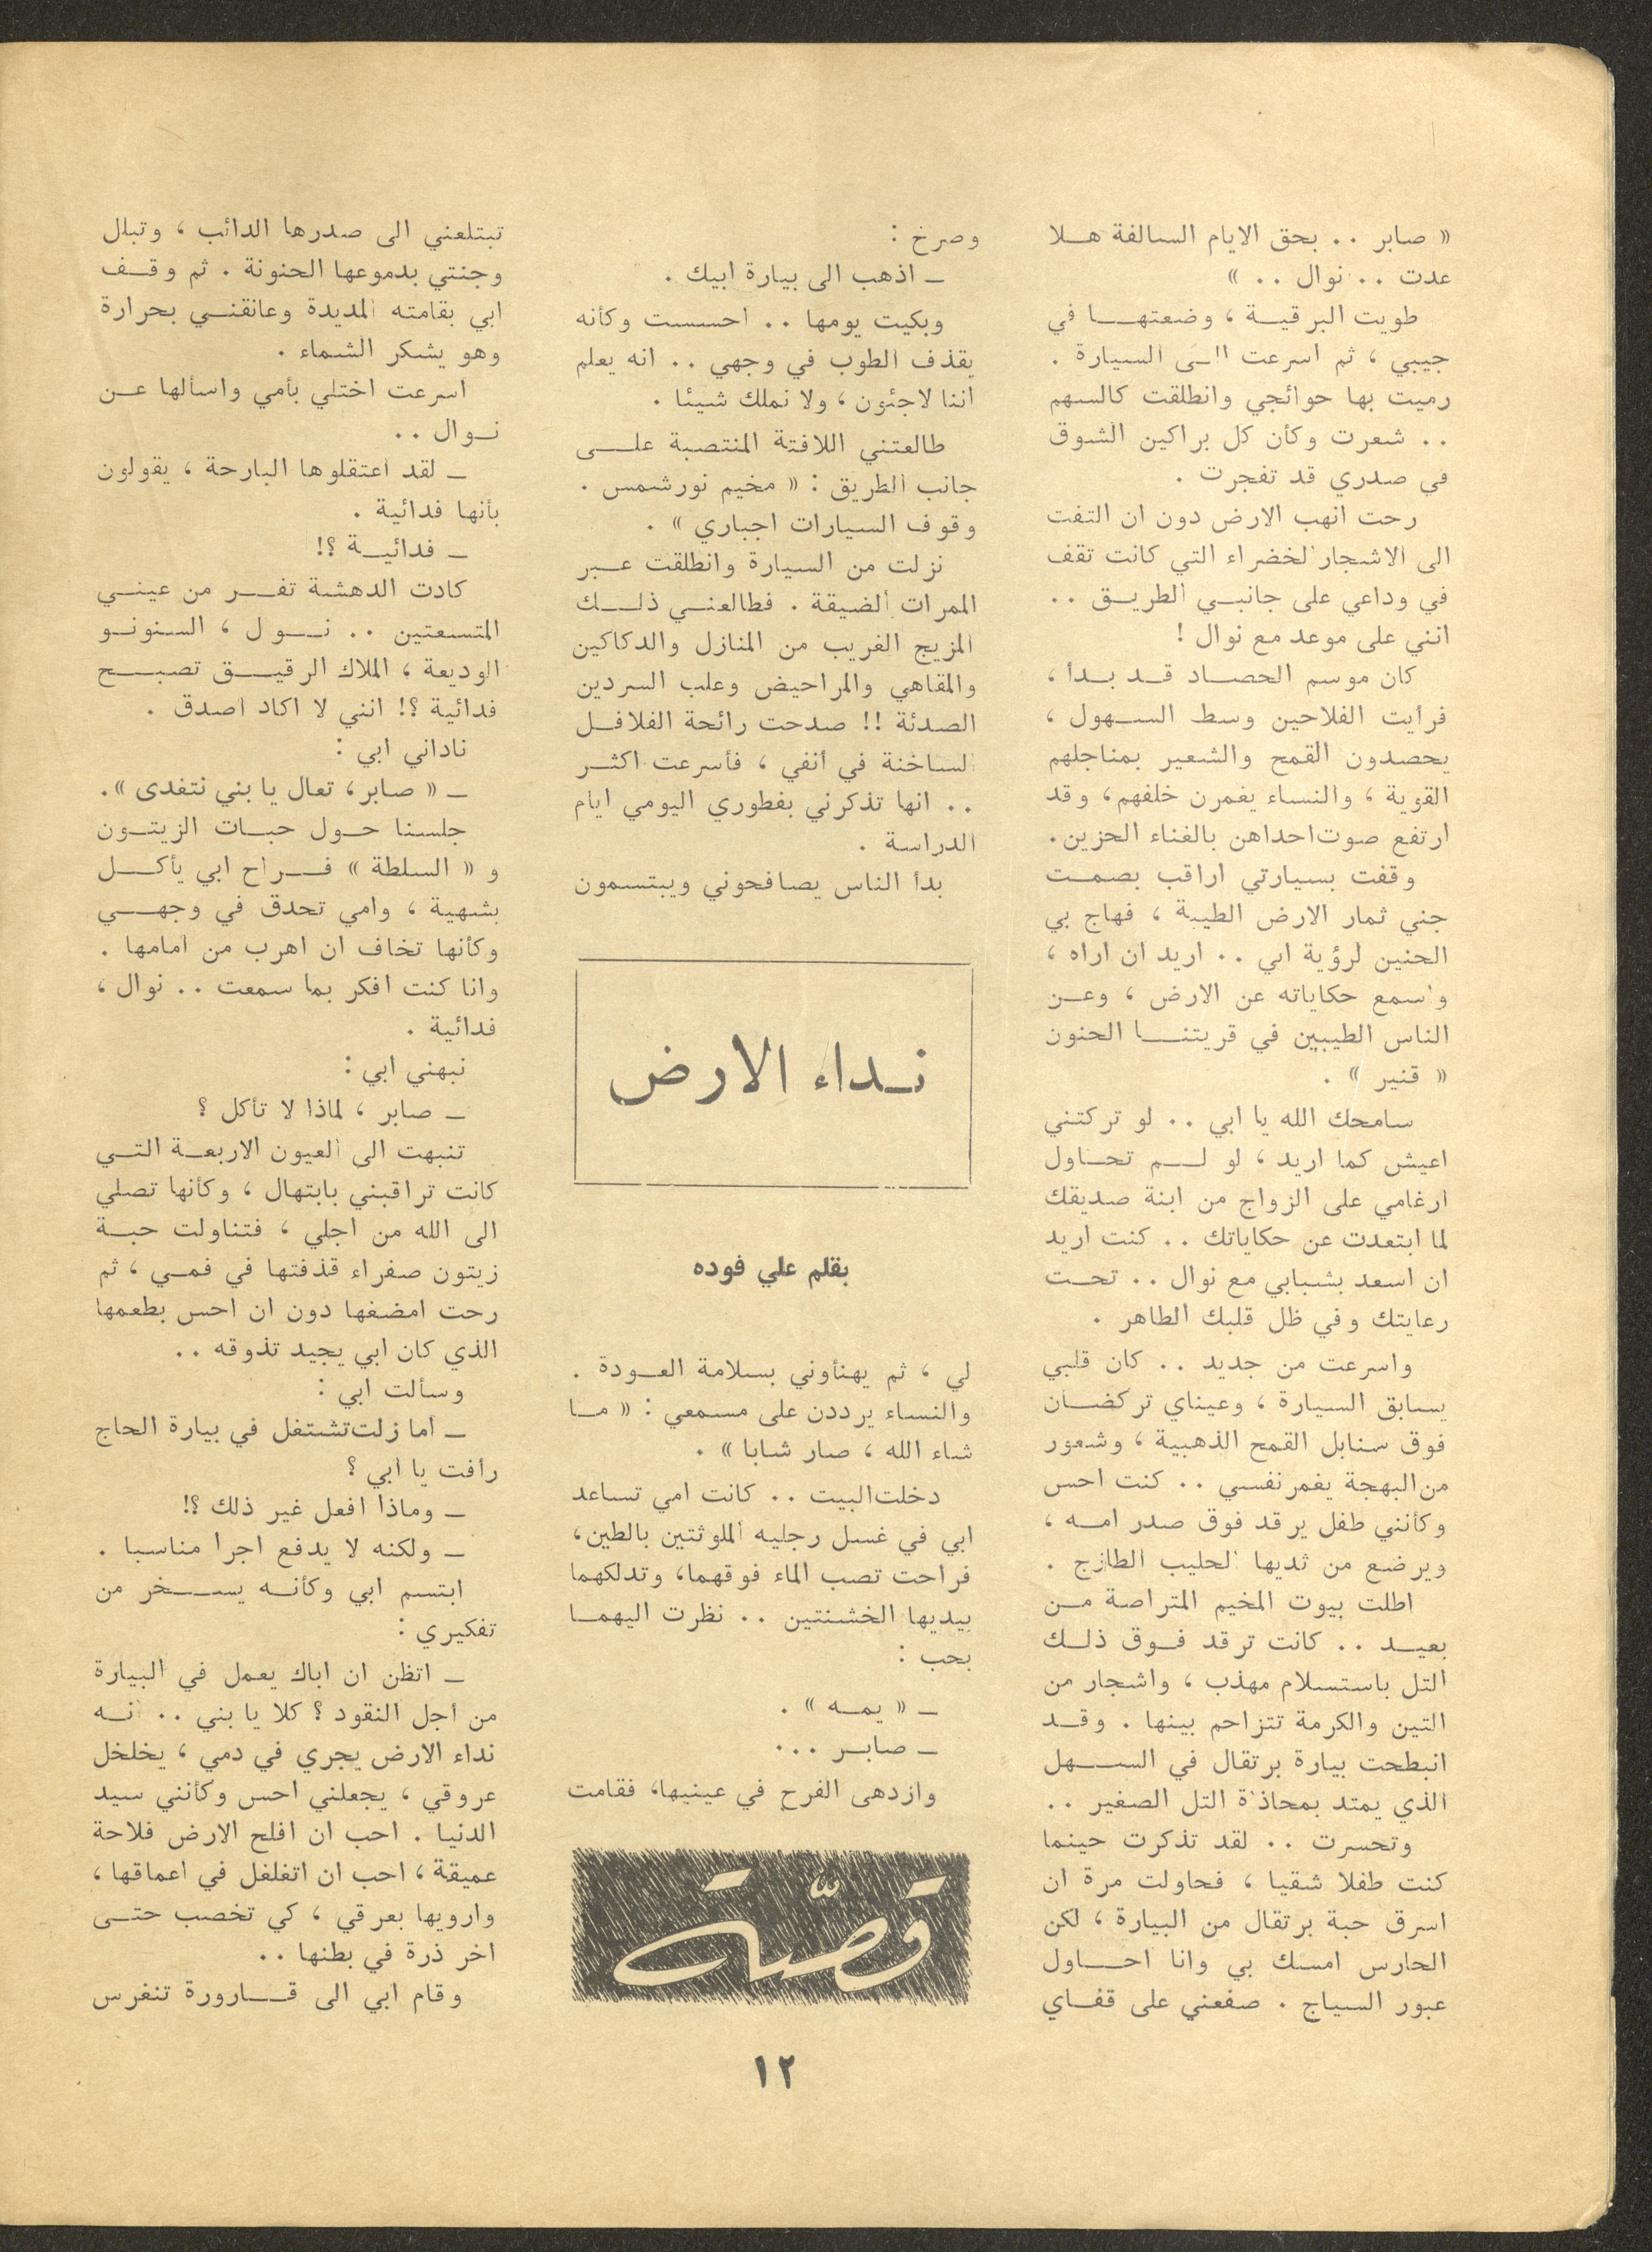 « صابر .. بحق الايام السالفة هـلا
عدت .. نوال .. »
طويت البرقيـة ، وضعتهـا في
جيبي ، ثم اسرعت الـى السيارة .
رميت بها حوائجي وانطلقت كالسهم
.. شعرت وكأن كل براكين الشوق
في صدري قد تفجرت .
رحت انهب الارض دون ان التفت
الى الاشجار الخضراء التي كانت تقف
في وداعي على جانبـي الطريـق ..
انني على موعد مع نوال !
كان موسم الحصـاد قـد بـدأ ،
فرأيت الفلاحين وسط السـهول ،
يحصدون القمح والشعير بمناجلهم
القوية ، والنساء يغمرن خلفهم، وقد
ارتفع صوت احداهن بالغناء الحزين.
وقفت بسيارتي اراقب بصمـت
جني ثمار الارض الطيبة ، فهاج بي
الحنين لرؤية ابي .. اريد ان اراه ،
واسمع حكاياته عن الارض ، وعـن
الناس الطيبين في قريتنـا الحنون
« قنير » .
سامحك الله يا ابي .. لو تركتني
اعيش كما اريد ، لو لـم تحـاول
ارغامي على الزواج من ابنة صديقك
لما ابتعدت عن حكاياتك .. كنت اريد
ان اسعد بشبابي مع نوال .. تحـت
رعايتك وفي ظل قلبك الطاهر .
واسرعت من جديد .. كان قلبي
يسابق السيارة ، وعيناي تركضـان
فوق سنابل القمح الذهبية ، وشعور
من البهجة يغمر نفسي .. كنت احس
وكأنني طفل يرقد فوق صدر امـه ،
ويرضع من ثديها الحليب الطازج .
اطلت بيوت المخيم المتراصة مـن
بعيـد .. كانت ترقد فـوق ذلـك
التل باستسلام مهذب ، واشجار من
التين والكرمة تتزاحم بينها . وقـد
انبطحت بيارة برتقال في السـهل
الذي يمتد بمحاذاة التل الصغير ..
وتحسرت .. لقد تذكرت حينما
كنت طفلا شقيا ، فحاولت مرة ان
اسرق حبة برتقال من البيارة ، لكن
الحارس امسك بي وانا احـاول
عبور السياج . صفعني على قفـاي
وصرخ :
ـ اذهب الى بيارة ابيك .
وبكيت يومها .. احسست وكأنه
يقذف الطوب في وجهي .. انه يعلم
اننا لاجئون ، ولا نملك شيئا .
طالعتني اللافتة المنتصبة علـى
جانب الطريق : « مخيم نورشمس .
وقوف السيارات اجباري » .
نزلت من السيارة وانطلقت عـبر
الممرات الضيقة . فطالعنـي ذلـك
المزيج الغريب من المنازل والدكاكين
والمقاهي والمراحيض وعلب السردين
الصدئة !! صدحت رائحة الفلافـل
الساخنة في أنفي ، فأسرعت اكثـر
.. انها تذكرني بفطوري اليومي ايام
الدراسة .
بدأ الناس يصافحوني ويبتسمون
نـداء الارض
بقلم علي فوده
لي ، ثم يهنأوني بسلامة العـودة .
والنساء يرددن على مسمعي : « مـا
شاء الله ، صار شابا » .
دخلت البيت .. كانت امي تساعد
ابي في غسل رجليه الملوثتين بالطين،
فراحت تصب الماء فوقهما، وتدلكهما
بيديها الخشنتين .. نظرت اليهمـا
بحب :
ـ « يمـه » .
ـ صابـر ...
وازدهى الفرح في عينيها، فقامت
قصّة
تبتلعني الى صدرها الدائب ، وتبلل
وجنتي بدموعها الحنونة . ثم وقـف
ابي بقامته المديدة وعانقنـي بحرارة
وهو يشكر الشماء .
اسرعت اختلي بأمي واسألها عـن
نـوال ..
ـ لقد اعتقلوها البارحة ، يقولون
بأنها فدائية .
ـ فدائيـة ؟!
كادت الدهشة تفـر من عينـي
المتسعتين .. نـول ، السنونـو
الوديعة ، الملاك الرقيـق تصبـح
فدائية ؟! انني لا اكاد اصدق .
ناداني ابي :
ـ « صابر، تعال يا بني نتغدى ».
جلسنا حـول حبـات الزيتـون
و « السلطة » فـراح ابي يأكـل
بشهية ، وامي تحدق في وجهـي
وكأنها تخاف ان اهرب من امامها .
وانا كنت افكر بما سمعت .. نوال ،
فدائية .
نبهني ابي :
ـ صابر ، لماذا لا تأكل ؟
تنبهت الى العيون الاربعـة التـي
كانت تراقبني بابتهال ، وكأنها تصلي
الى الله من اجلي ، فتناولت حبـة
زيتون صفراء قذفتها في فمـي ، ثم
رحت امضغها دون ان احس بطعمها
الذي كان ابي يجيد تذوقه ..
وسألت ابي :
ـ أما زلت تشتغل في بيارة الحاج
رأفت يا أبي ؟
ـ وماذا افعل غير ذلك ؟!
ـ ولكنه لا يدفع اجرا مناسبا .
ابتسم ابي وكأنـه يسـخر من
تفكيري :
ـ اتظن ان اباك يعمل في البيارة
من أجل النقود ؟ كلا يا بني .. انـه
نداء الارض يجري في دمي ، يخلخل
عروقي ، يجعلني احس وكأنني سيد
الدنيا . احب ان افلح الارض فلاحة
عميقة ، احب ان اتغلغل في اعماقها ،
وارويها بعرقي ، كي تخصب حتـى
اخر ذرة في بطنها ..
وقام ابي الى قـارورة تنغرس
١٢